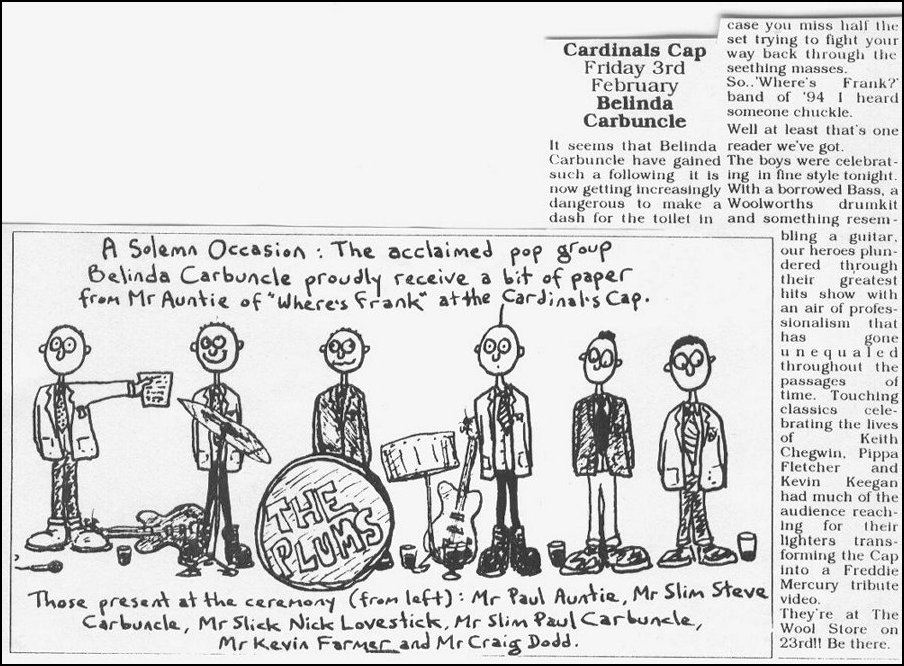 Cardinals Cap
Friday 3rd
February
Belinda
Carbuncle
It seems that Belinda
Carbuncle have gained
such a following it is
now getting increasingly
dangerous to make a
dash for the toilet in
case you miss half the
set trying to fight your
way back through the
seething masses.
So..'Where's Frank?'
band of '94 I heard
someone chuckle.
Well at least that's one
reader we've got.
The boys were celebrat-
ing in fine style tonight.
With a borrowed Bass, a
Woolworths drumkit
and something resem-
bling a guitar,
our heroes plun-
dered through
their greatest
hits show with
an air of profes-
sionalism that
has gone
unequaled
throughout the
passages of
time. Touching
classics cele-
brating the lives
of Keith
Chegwin, Pippa
Fletcher and
Kevin Keegan
had much of the
audience reach-
ing for their
lighters trans-
forming the Cap
into a Freddie
Mercury tribute
video.
They're at The
Wool Store on
23rd!! Be there.
A Solemn Occasion : The acclaimed pop group
Belinda Carbuncle proudly receive a bit of paper
from Mr Auntie of "Where's Frank" at the Cardinal's Cap.
THE
PLUMS
Those present at the ceremony (from left) : Mr Paul Auntie, Mr Slim Steve
Carbuncle, Mr Slick Nick Lovestick, Mr Slim Paul Carbuncle,
Mr Kevin Farmer and Mr Craig Dodd.